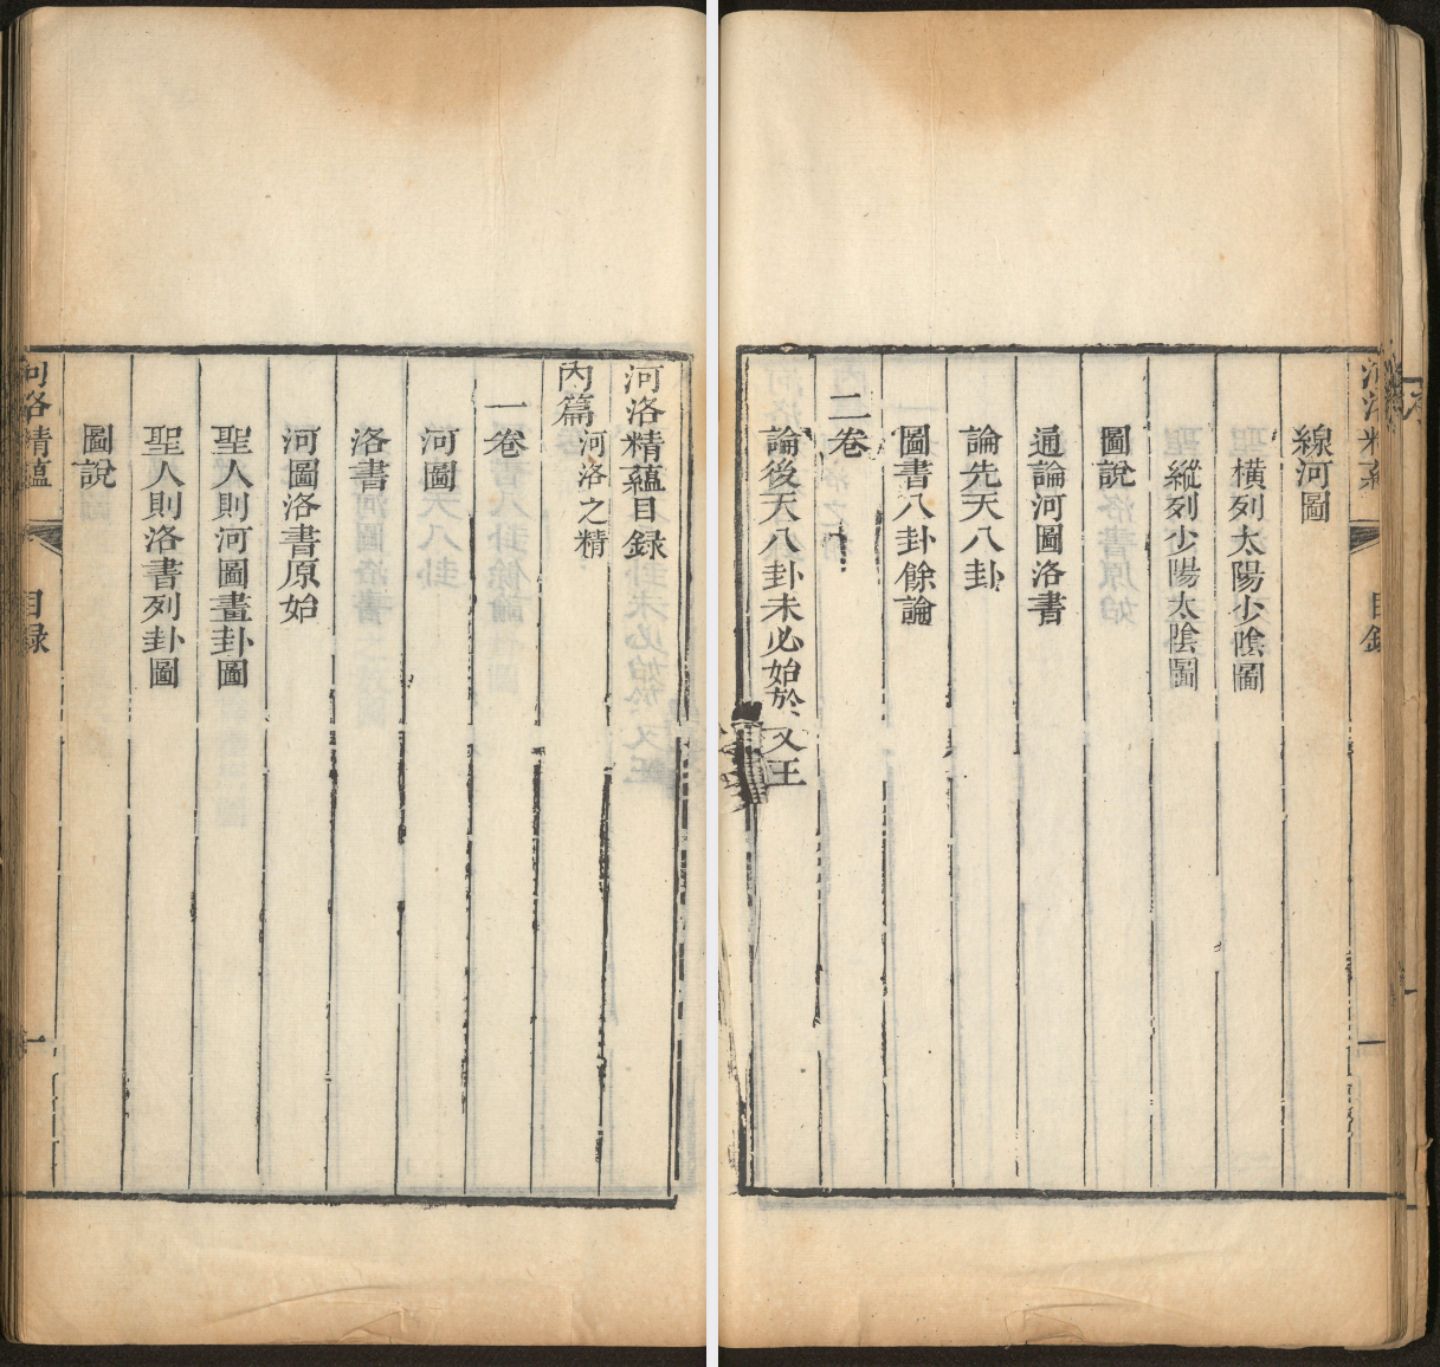 河洛精蘊目録
內篇 河洛之精
一卷
河圖
洛書
河圖洛書原始
聖人則河圖畫卦圖
聖人則洛書列卦圖
圖說
河洛精蘊 目録 一
線河圖
橫列太陽少陰圖
縱列少陽太陰圖
圖說
通論河圖洛書
論先天八卦
圖書八卦餘論
二卷
論後天八卦未必始於文王